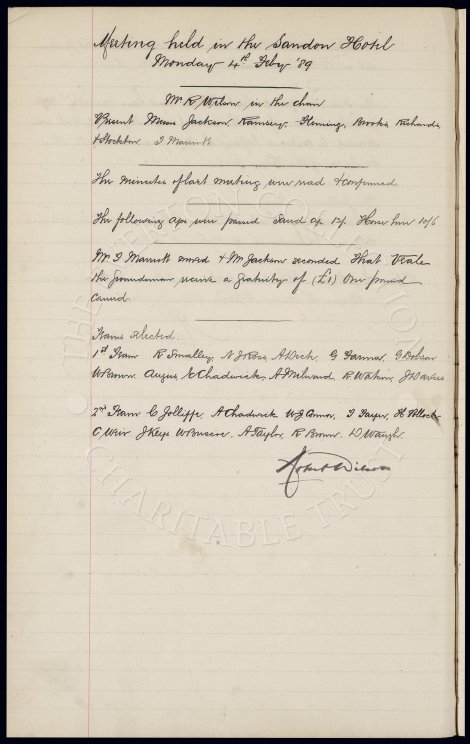 Meeting held in the Sandon Hotel
Monday 4th Feby '89
Mr R Wilson in the chair
Present Messrs Jackson Ramsey, Fleming, Brooks, Richards
& Stockton. T Marriott.
The minutes of last meeting were read & confirmed.
The following a/cs were passed Sand a/c 13/- Horse hire 10/6
Mr. T Marriott moved & Mr Jackson seconded That Veale
the Groundsman receive a gratuity of (£1) One pound
Carried.
Teams selected.
1st Team R Smalley, N J Ross, A Dick, G Farmer, G Dobson
W Brown Angus, E Chadwick, A Milward R Watson, J Davies
2nd Team C Jolliffe, A Chadwick W J Connor, H Pollock
C Weir J Keys W Briscoe, A Taylor, R Brown. D Waugh.
Robert Wilson
THE EVERTON COLLECTION
CHARITABLE TRUST